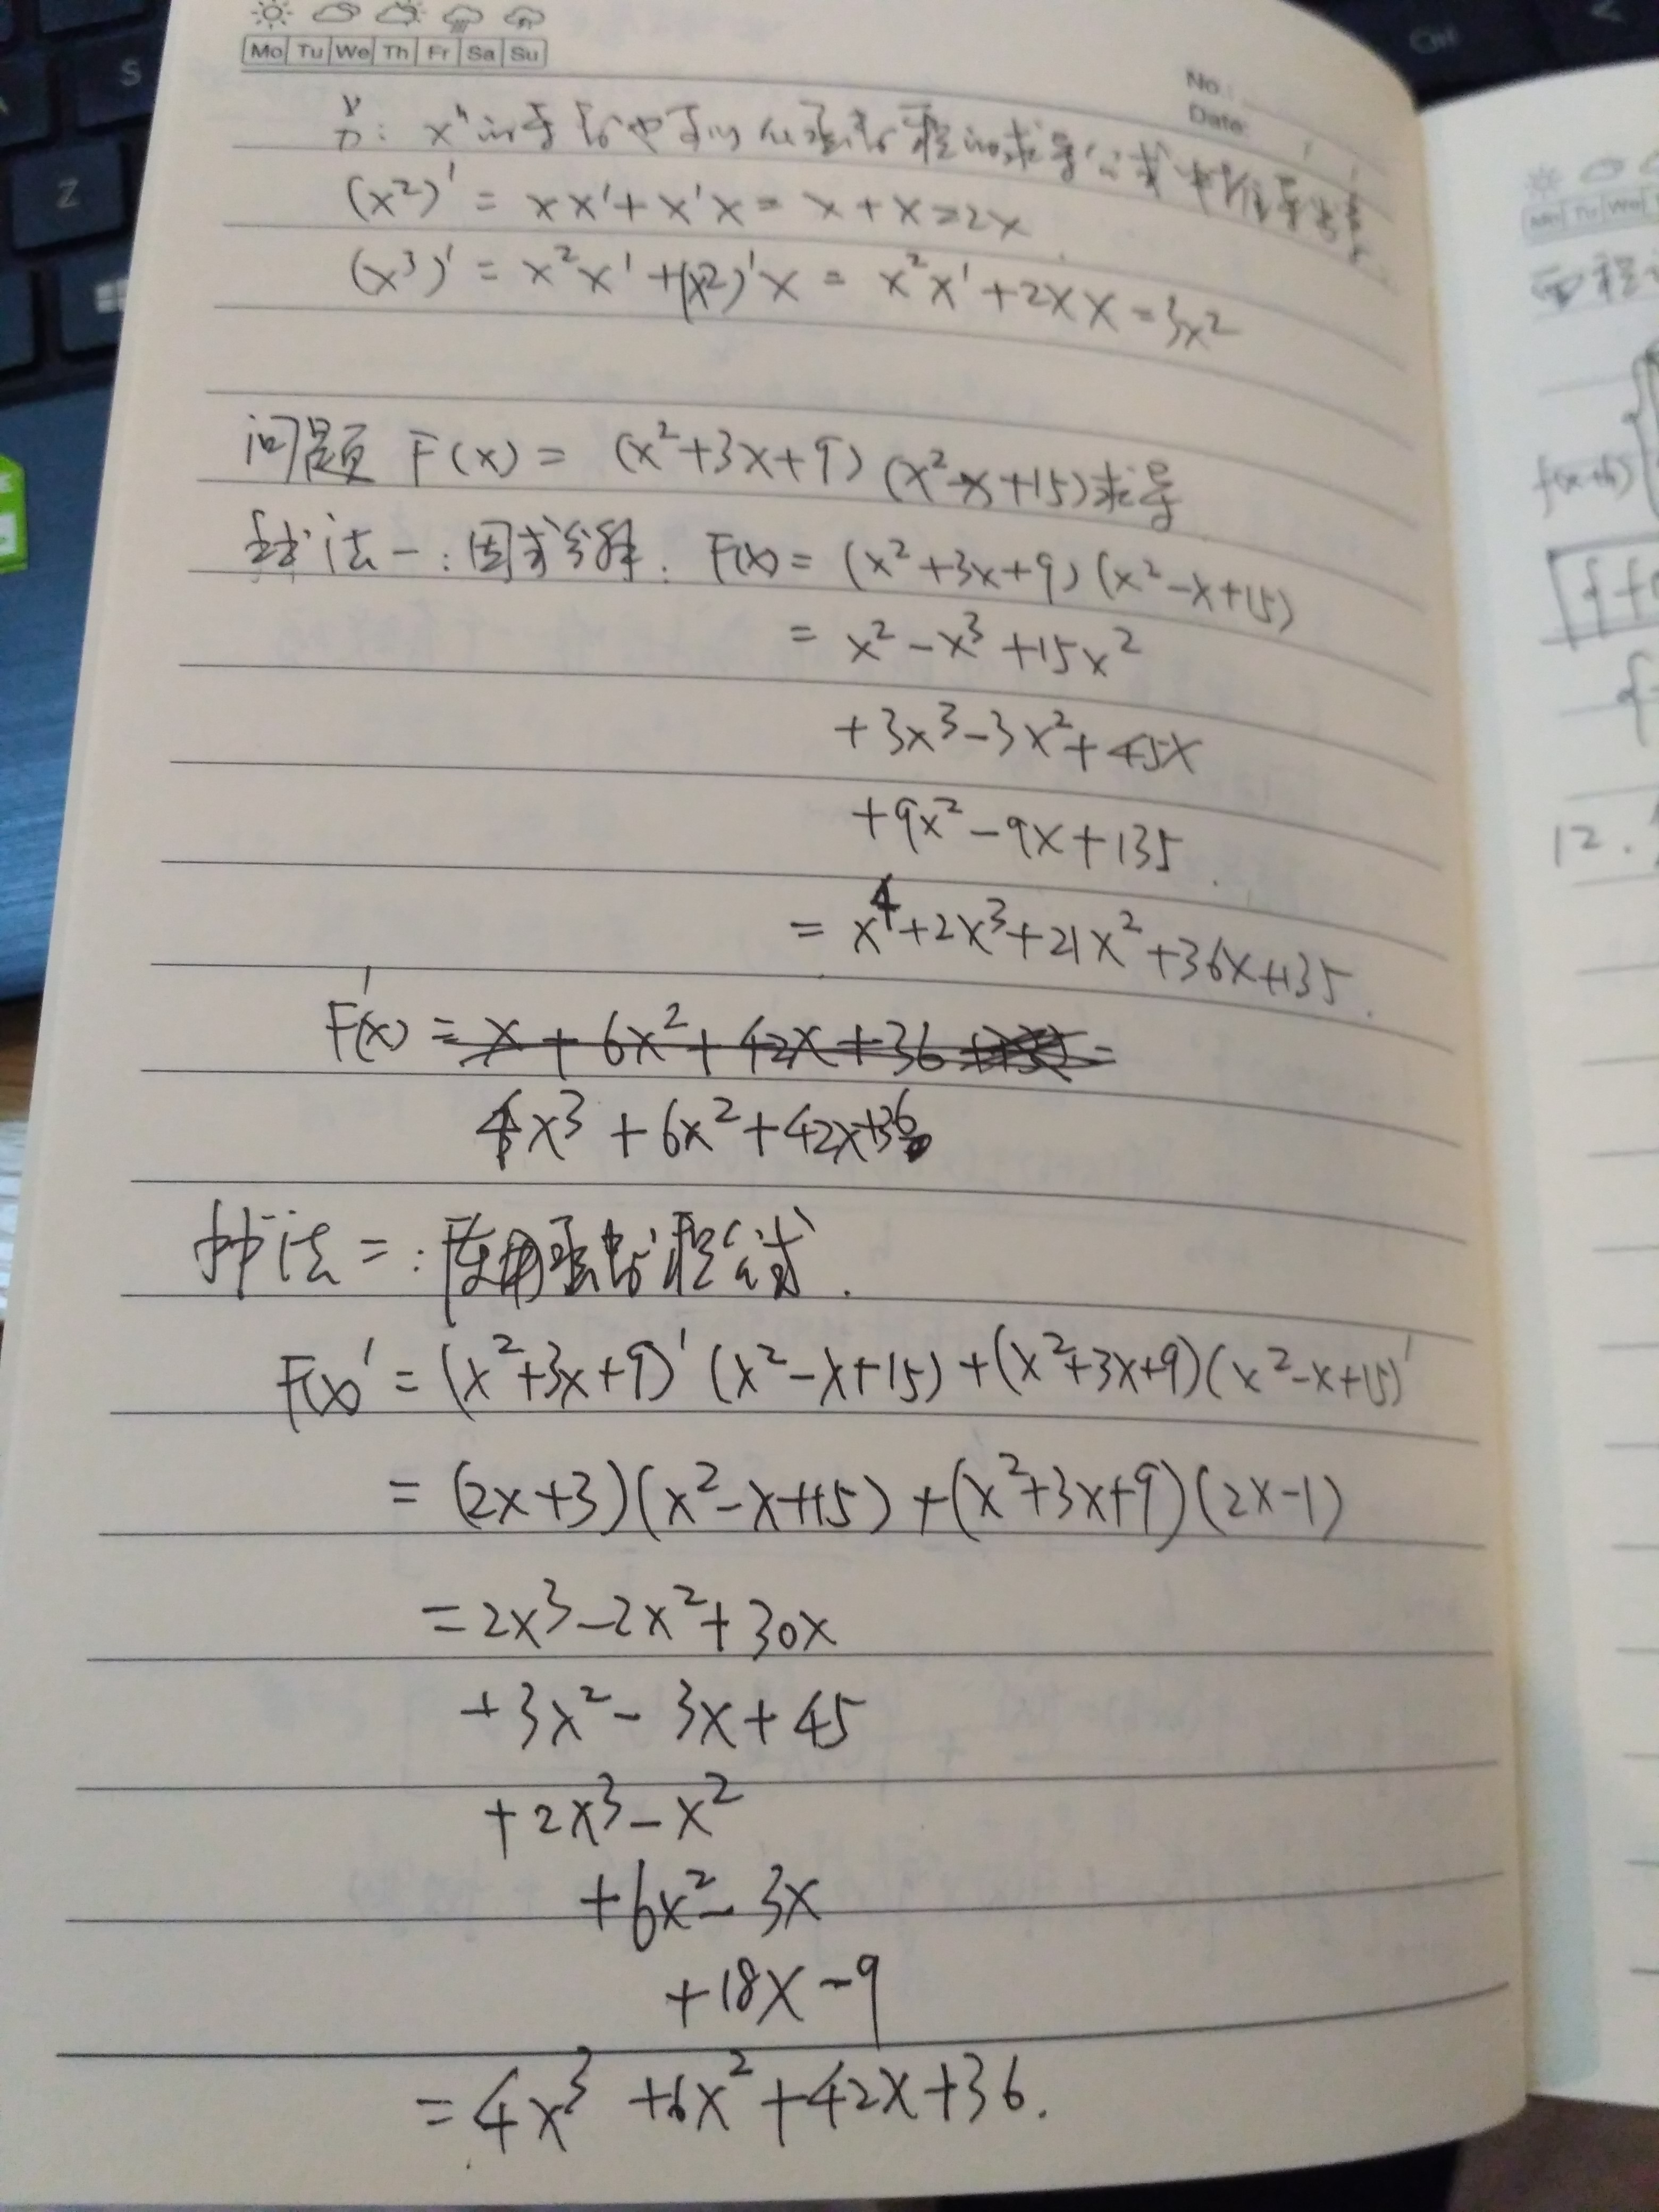 Mo Tu We Th Fr Sa Su
No.:
Date:
(x²)' = xx' + x'x = x + x = 2x
(x³)' = x²x' + (x²)'x = x²x' + 2xx = 3x²
问题 F(x) = (x²+3x+9)(x²-x+15)求导
法一:因式分解. F(x) = (x²+3x+9)(x²-x+15)
= x² - x³ + 15x²
+3x³ - 3x² + 45x
+9x² - 9x + 135
= x⁴+2x³+21x²+36x+135
F'(x) = x + 6x² + 42x + 36 =
4x³ + 6x² + 42x + 36
法二:使用乘积 公式.
F(x)' = (x²+3x+9)'(x²-x+15) + (x²+3x+9)(x²-x+15)'
= (2x+3)(x²-x+15) + (x²+3x+9)(2x-1)
= 2x³ - 2x² + 30x
+3x² - 3x + 45
+2x³ - x²
+6x² - 3x
+18x - 9
= 4x³ + 6x² + 42x + 36.
12.
Ctrl
S
Z